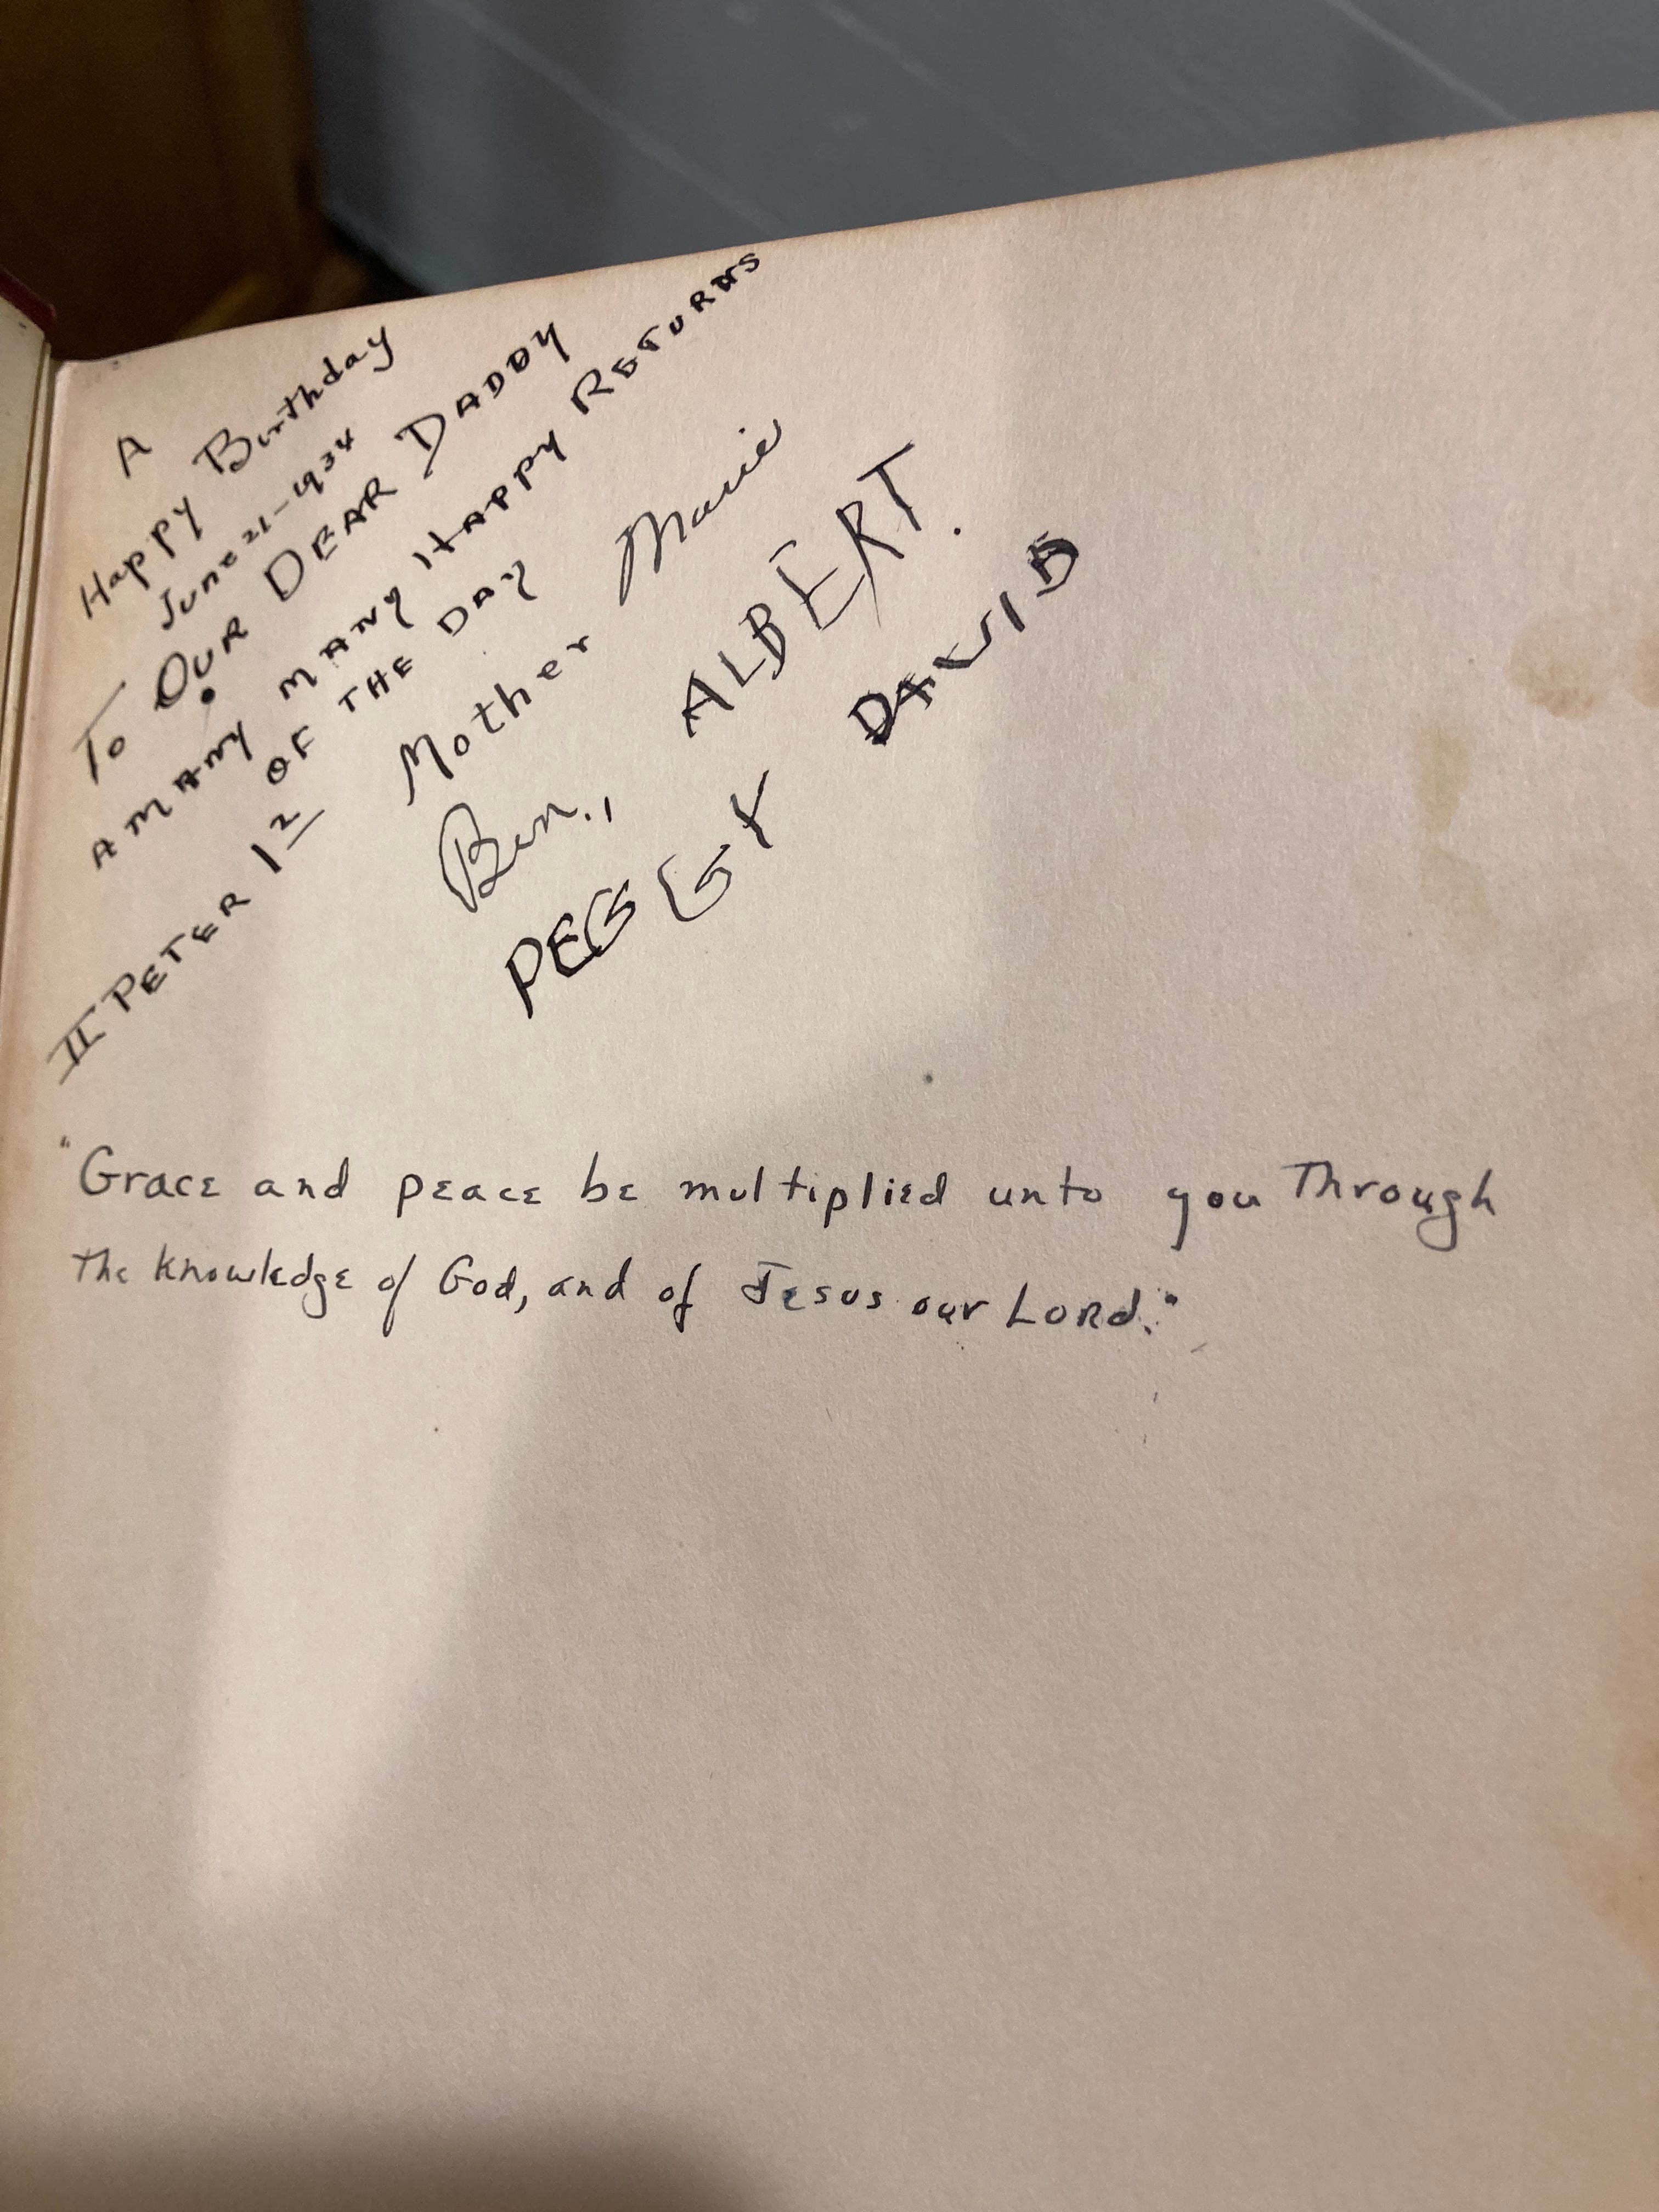 A
Happy Birthday
June 21-1934
To OUR DEAR DADDY
A MANY MANY HAPPY RETURNS
OF THE DAY
II PETER 1 2
Mother Marie
Ben., ALBERT.
PEGGY DAVID
"Grace and peace be multiplied unto you Through
The knowledge of God, and of Jesus our Lord."